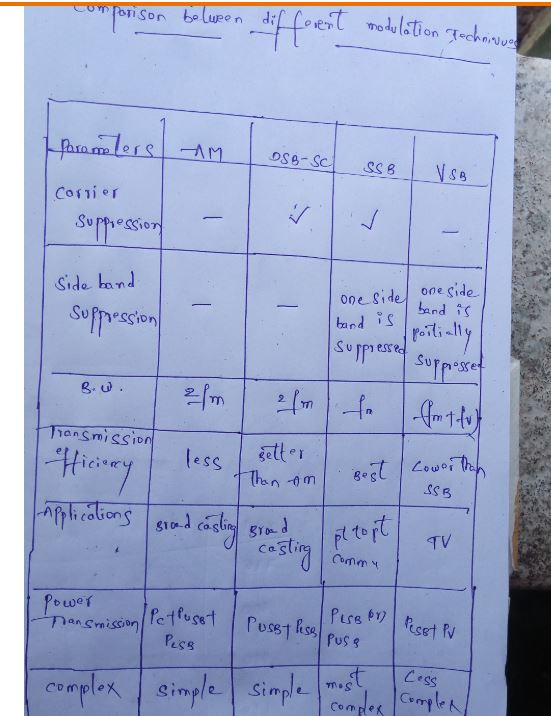 Comparison between different modulation Techniques
Parameters AM DSB-SC SSB VSB
Carrier suppression — ✓ ✓ —
Side band suppression — — one side band is suppressed one side band is partially suppressed
B.W. 2fm 2fm fm (fm+fv)
Transmission efficiency less Better than Am Best Lower than SSB
Applications Broad casting Broad casting pt to pt comm TV
Power Transmission Pc+PUSB+PLSB PUSB+PLSB PLSB (or) PUSB PLSB+PV
complex simple simple most complex Less complex